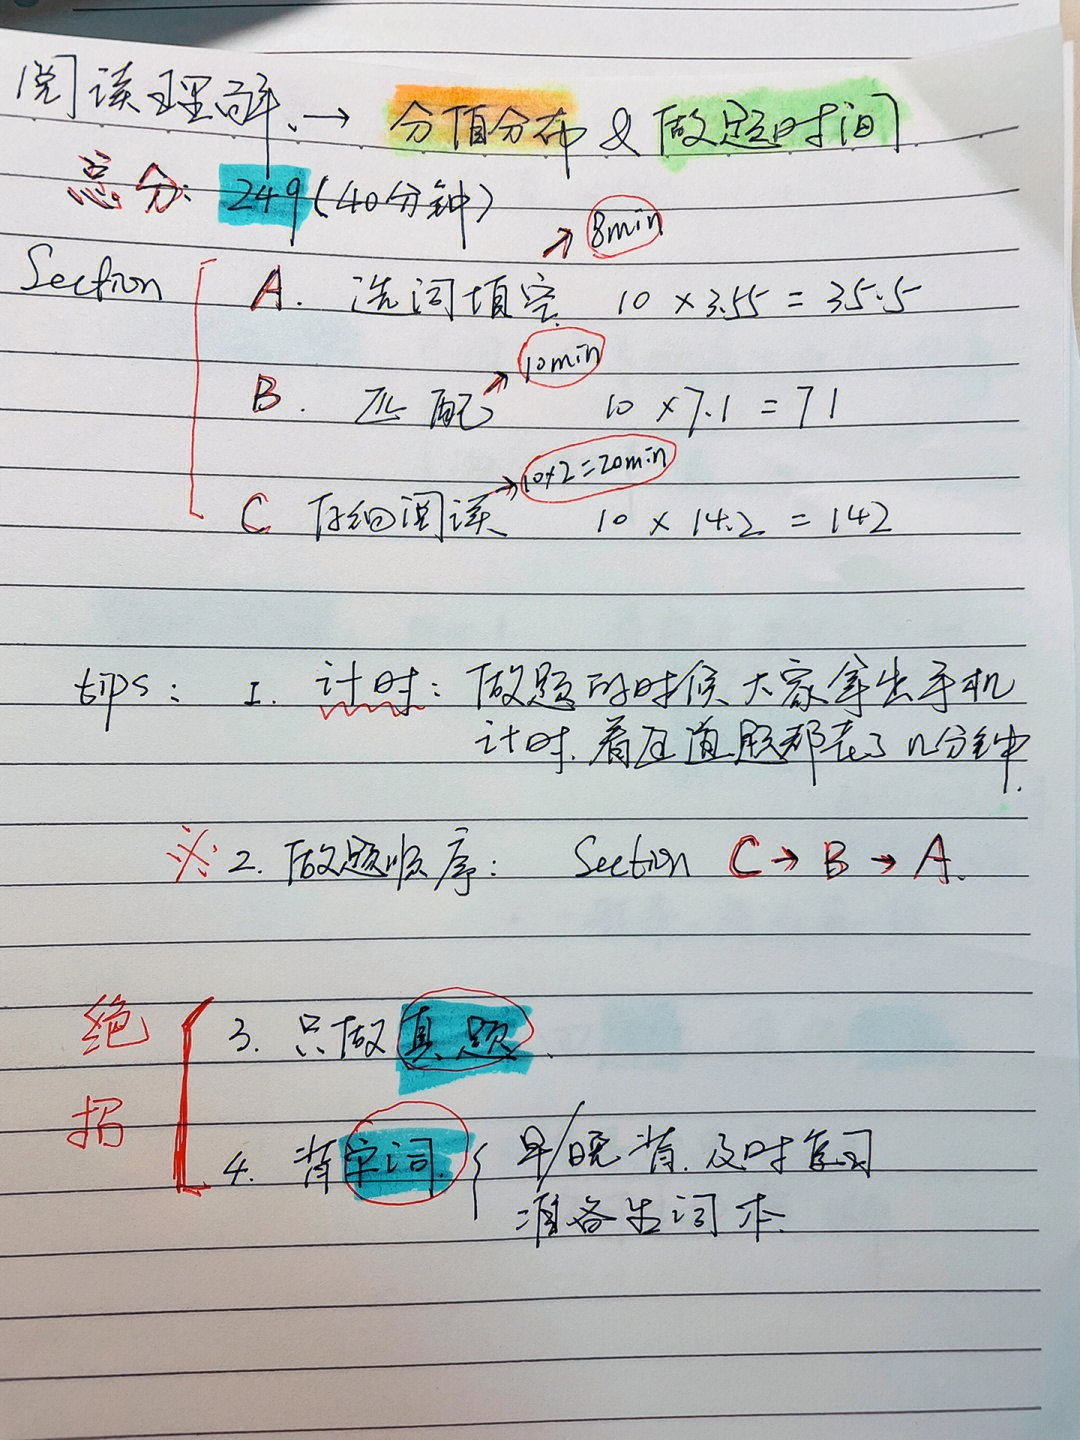 阅读理解、→ 分值分布 & 做题时间
总分: 249(40分钟)
Section
A. 选词填空 ↗ 8min 10 × 3.55 = 35.5
B. 匹配 ↗ 10min 10 × 7.1 = 71
C 仔细阅读 → 10×2=20min 10 × 14.2 = 142
tips: 1. 计时: 做题的时候大家拿出手机
计时.看每道题都花了几分钟.
※ 2. 做题顺序: Section C → B → A.
绝招
3. 只做真题.
4. 背单词. { 早/晚背.及时复习
准备生词本.